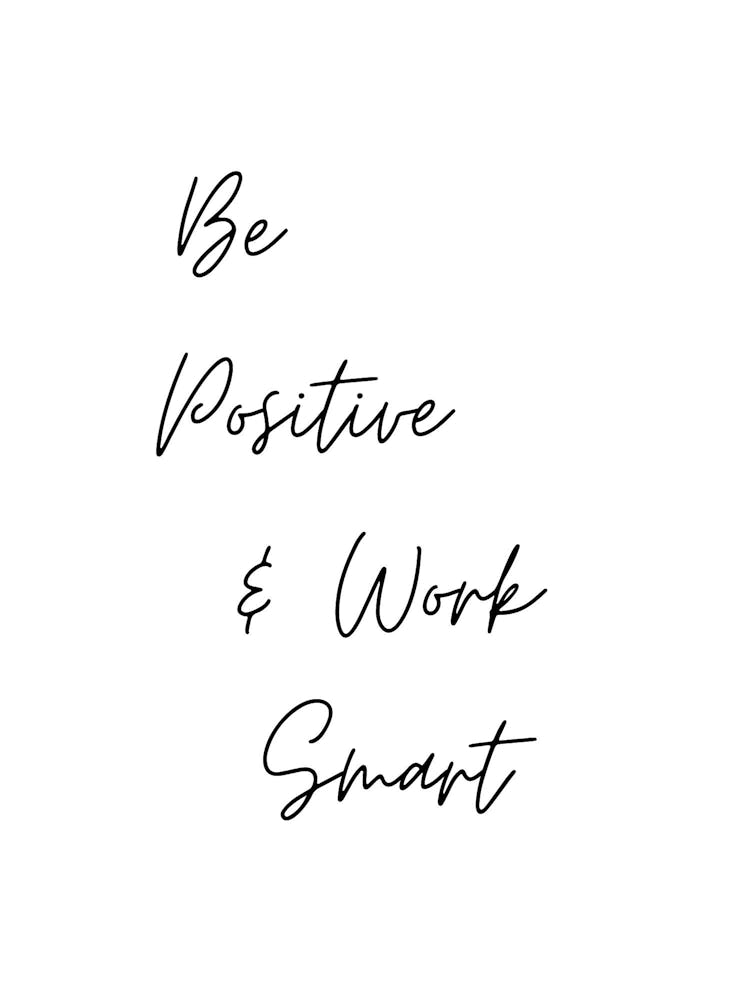 Be
Positive
& Work
Smart